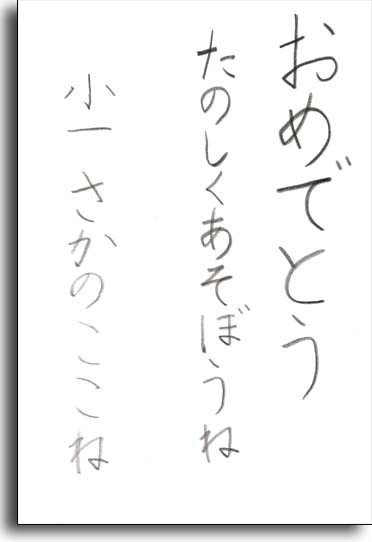 おめでとう
たのしくあそぼうね
小一 さかの ここね